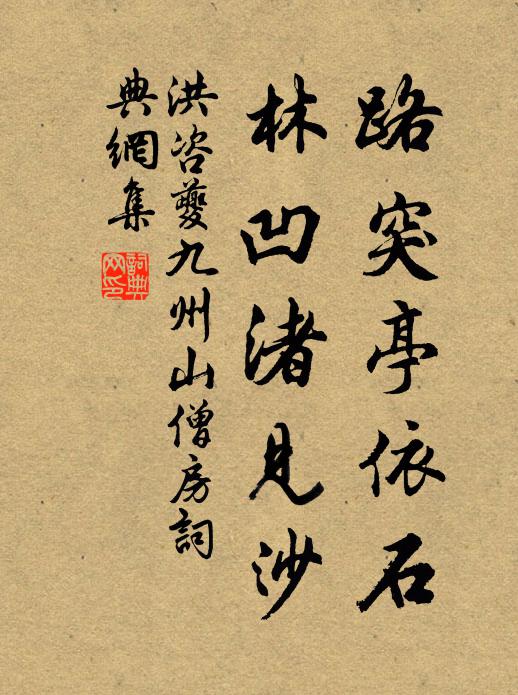 路突亭依石
林凹渚見沙
洪咨夔九州山僧房詞
典網集
詞典网印